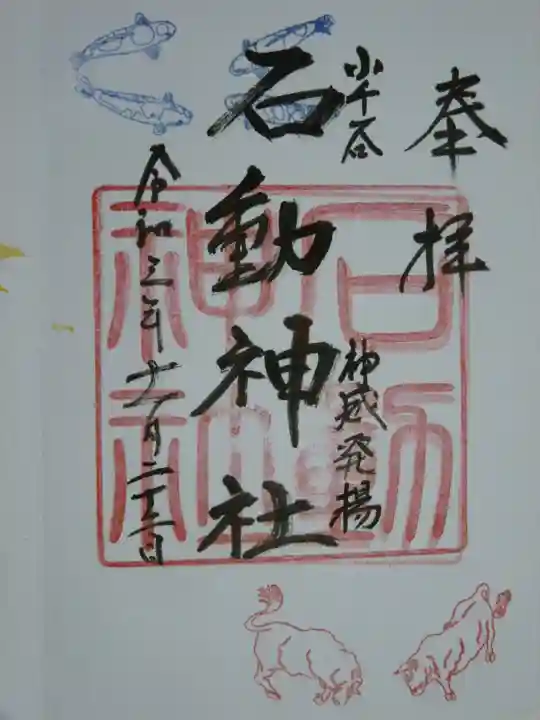 奉拝
小千谷
神威発揚
石動神社
令和三年十一月二十三日